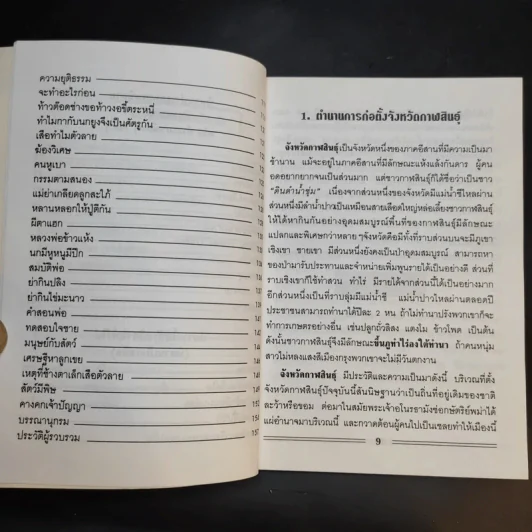 ความยุติธรรม
จะทำอะไรก่อน
ท้าวต๊อดช่างขอท้าวงอขี้ตระหนี่
ทำไมกากับนกยูงจึงเป็นศัตรูกัน
เสือทำไมตัวลาย
ฆ้องวิเศษ
คนหูเบา
กรรมตามสนอง
แม่ย่าเกลียดลูกสะใภ้
หลานหลอกให้ปู่ตีกัน
ผีตาแฮก
หลวงพ่อข้าวแห้ง
นกมีหูหนูมีปีก
สมบัติพ่อ
ย่ากินปลิง
ย่ากินใช่มะนาว
คำสอนพ่อ
ทดสอบใจชาย
มนุษย์กับสัตว์
เศรษฐีหาลูกเขย
เหตุที่ช้างตาเล็กเสือตัวลาย 149
สัตว์มีพิษ
คางคกเจ้าปัญญา 152
บรรณานุกรม 154
ประวัติผู้รวบรวม 157
1. ตำนานการก่อตั้งจังหวัดกาฬสินธุ์
จังหวัดกาฬสินธุ์เป็นจังหวัดหนึ่งของภาคอีสานที่มีความเป็นมา
ช้านาน แม้จะอยู่ในภาคอีสานที่มีลักษณะแห้งแล้งกันดาร ผู้คน
อดอยากยากจนเป็นส่วนมาก แต่ชาวกาฬสินธุ์ก็ได้ชื่อว่าเป็นชาว
"ดินดำน้ำชุ่ม" เนื่องจากส่วนหนึ่งของจังหวัดมีแม่น้ำชีไหลผ่าน
ส่วนหนึ่งมีลำน้ำปาวเป็นเหมือนสายเลือดใหญ่หล่อเลี้ยงชาวกาฬสินธุ์
ให้ได้หากินกันอย่างอุดมสมบูรณ์พื้นที่ของกาฬสินธุ์มีลักษณะ
แปลกและพิเศษกว่าหลาย ๆจังหวัดคือมีทั้งที่ราบส่วนบนจะมีภูเขา
เชิงเขา ชายเขา มีส่วนหนึ่งยังคงเป็นป่าอุดมสมบูรณ์ สามารถหา
ของป่ามารับประทานและจำหน่ายเพิ่มพูนรายได้เป็นอย่างดี ส่วนที่
ราบเชิงเขาก็ใช้ทำสวน ทำไร่ มีรายได้จากส่วนนี้ได้เป็นอย่างมาก
อีกส่วนหนึ่งเป็นที่ราบลุ่มมีแม่น้ำชี แม่น้ำปาวไหลผ่านตลอดปี
ประชาชนสามารถทำนาได้ปีละ 2 หน ถ้าไม่ทำนาปรังพวกเขาก็จะ
ทำการเกษตรอย่างอื่น เช่นปลูกถั่วลิสง แตงโม ข้าวโพด เป็นต้น
ดังนั้นชาวกาฬสินธุ์จึงมีลักษณะขึ้นภูทำไร่ลงได้ทำนา ถ้าคนหนุ่ม
สาวไม่หลงแสงสีเมืองกรุงพวกเขาจะไม่มีวันตกงาน
จังหวัดกาฬสินธุ์ มีประวัติและความเป็นมาดังนี้ บริเวณที่ตั้ง
จังหวัดกาฬสินธุ์ปัจจุบันนี้สันนิษฐานว่าเป็นถิ่นที่อยู่เดิมของชาติ
ละว้าหรือขอม ต่อมาในสมัยพระเจ้าอโนรธามังช่อกษัตริย์พม่าได้
แผ่อำนาจมาบริเวณนี้ และกวาดต้อนผู้คนไปเป็นเชลยทำให้เมืองนี้
9